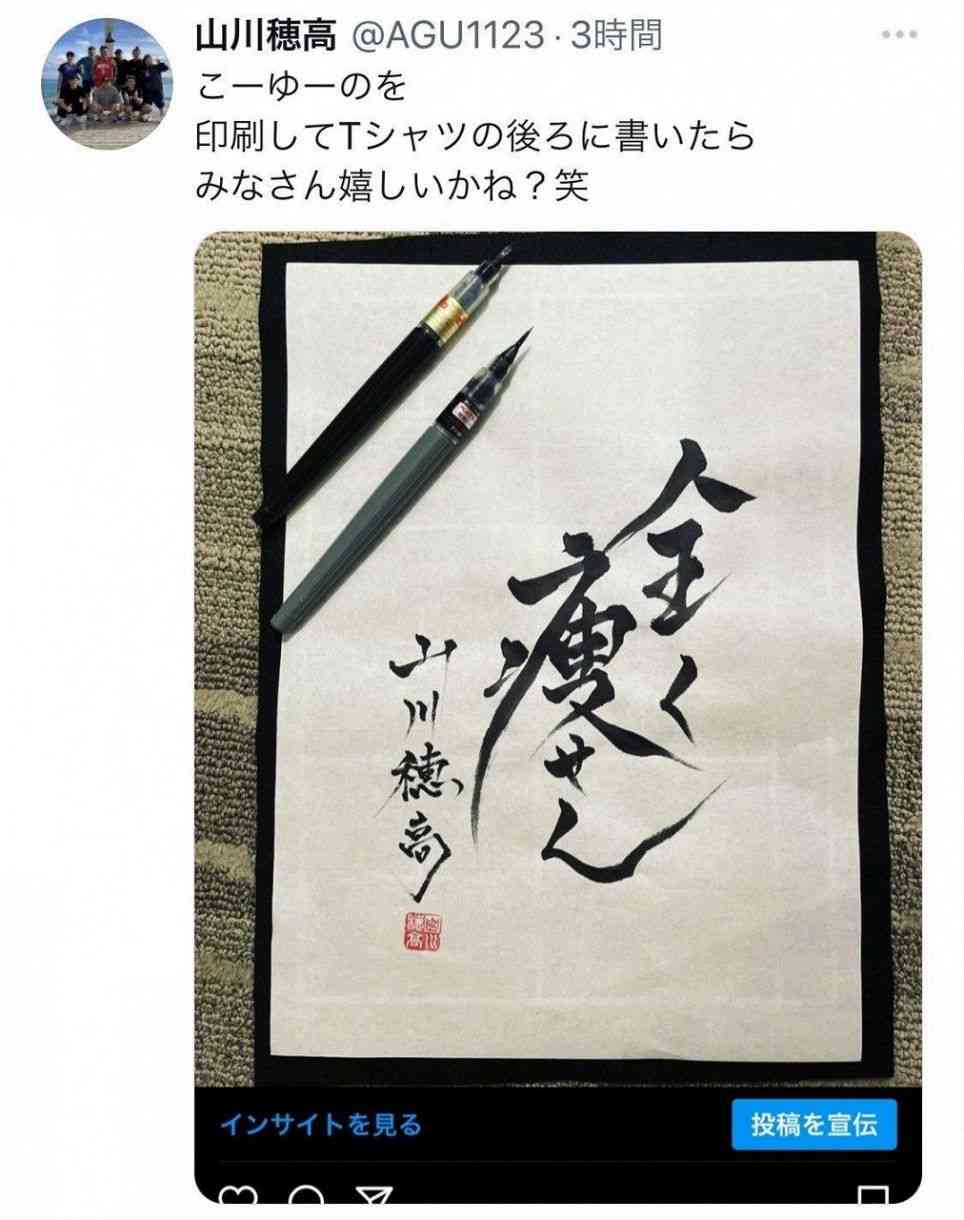 山川穂高 @AGU1123・3時間
こーゆーのを
印刷してTシャツの後ろに書いたら
みなさん嬉しいかね？笑
全く
痩せん
山川穂高
山川
穂高
インサイトを見る
投稿を宣伝